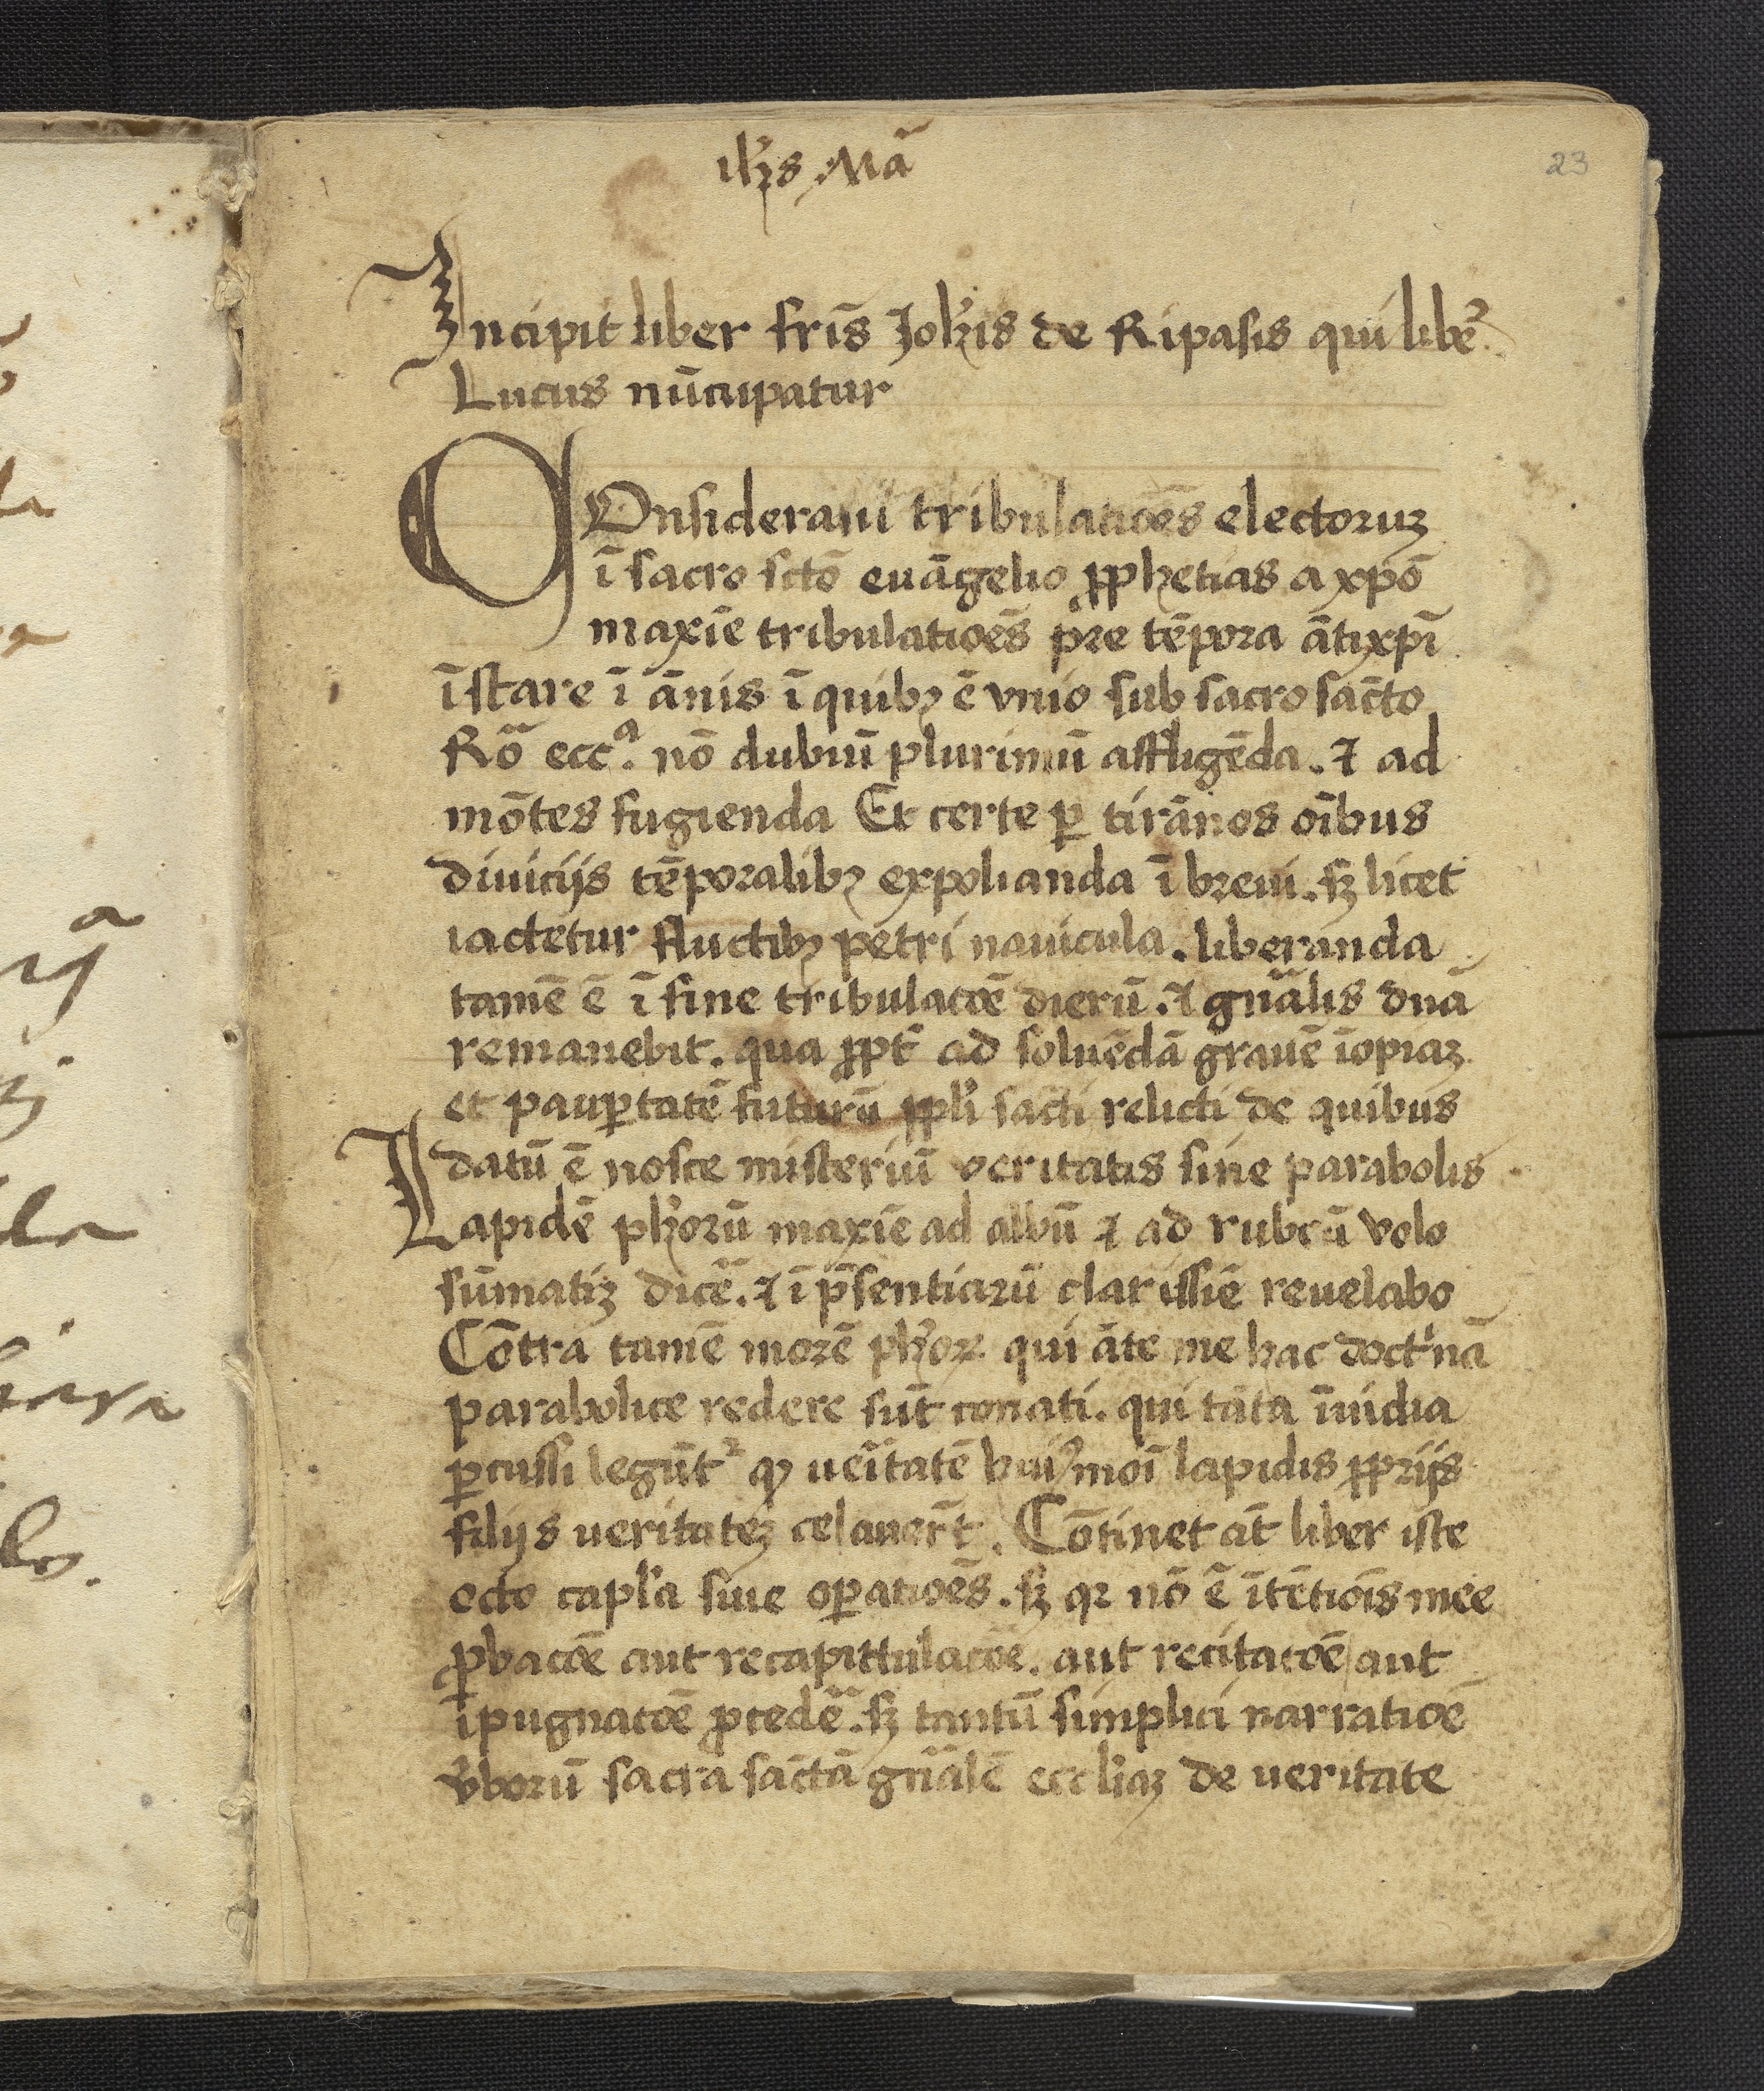 ihs Mã
23
Incipit liber fris̄ Joh̄is de Ripasis qui libe᷒
Lucus nūcupatur
COnsideraui tribulatioēs electoruꝫ
ī sacro sctō euāgelio ꝓphetias a xpō
maxīe tribulatioēs p̄re tēpora ātixpī
īstare ī ānis ī quibꝫ ē vnio sub sacro sācto
Rō eccᵃ. nō dubiū plurimū affligēda. ⁊ ad
mōtes fugienda Et certe ꝑ tirānos oībus
diuicijs tēporalibꝫ expolianda ī breui. sꝫ licet
iactetur fluctibꝫ petri nauicula. liberanda
tamē ē ī fine tribulatōe dierū. ⁊ gnālis dnā
remanebit. qua ꝓpt̄ ad soluēdā grauē īopiaꝫ
et pauꝑtatē futurū ppl̄i sācti relicti de quibus
datū ē nosce misteriū veritatis sine parabolis
Lapidē ph̄orū maxīe ad albū ⁊ ad rubeū volo
sūmatiꝫ dicē. ⁊ ī p̄sentiarū clarissīe reuelabo
Cōtra tamē morē ph̄oꝝ qui āte me hac doctⁱnā
parabolice redere sūt conati. qui tāta īuidia
ꝑcussi legūt᷑ qꝫ ueītatē huiꝰmōi lapidis ꝓprijs
filijs ueritateꝫ celauer̄t. Cōtinet āt liber iste
octo capl̄a siue oꝑatioēs. sꝫ qꝛ nō ē ītētiōis mee
ꝓbatōe aut recapittulatōe. aut recitatōe aut
īpugnatōe ꝓcedē. sꝫ tantū simplici narratiōe
v̄borū sacra sāctā gnālē eccl̄iaꝫ de ueritate